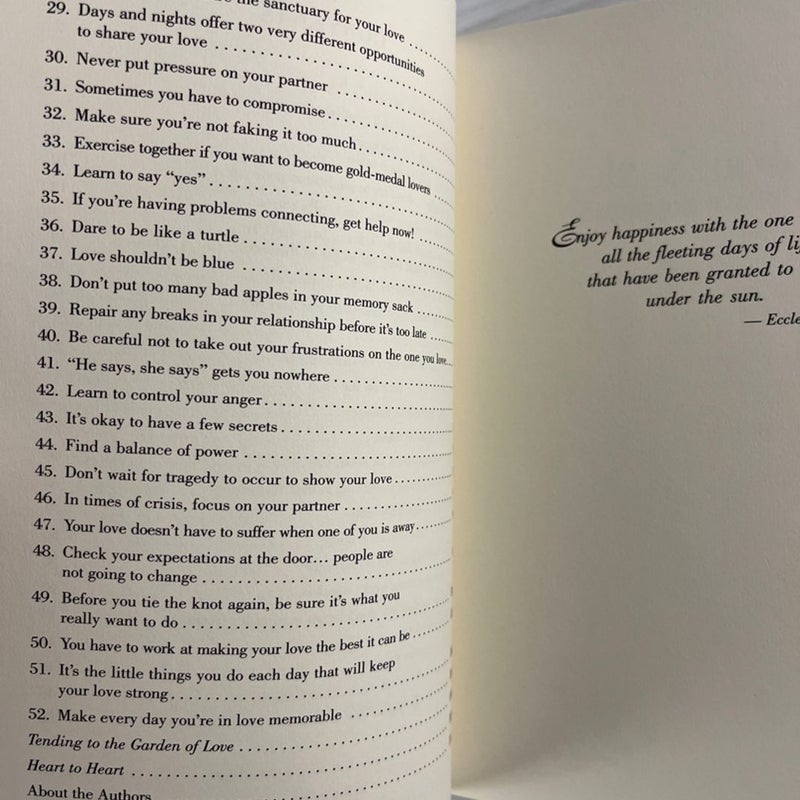 the sanctuary for your love ........
29. Days and nights offer two very different opportunities
to share your love ........................
30. Never put pressure on your partner ................
31. Sometimes you have to compromise................
32. Make sure you're not faking it too much..............
33. Exercise together if you want to become gold-medal lovers .....
34. Learn to say “yes” ........................
35. If you're having problems connecting, get help now! ......
36. Dare to be like a turtle ........................
37. Love shouldn't be blue ........................
38. Don't put too many bad apples in your memory sack ......
39. Repair any breaks in your relationship before it's too late ......
40. Be careful not to take out your frustrations on the one you love...
41. “He says, she says” gets you nowhere ................
42. Learn to control your anger........................
43. It's okay to have a few secrets ......................
44. Find a balance of power ........................
45. Don't wait for tragedy to occur to show your love..........
46. In times of crisis, focus on your partner ................
47. Your love doesn't have to suffer when one of you is away.......
48. Check your expectations at the door... people are
not going to change ........................
49. Before you tie the knot again, be sure it's what you
really want to do ........................
50. You have to work at making your love the best it can be ......
51. It's the little things you do each day that will keep
your love strong........................
52. Make every day you're in love memorable ..............
Tending to the Garden of Love ........................
Heart to Heart ........................
About the Authors
Enjoy happiness with the one
all the fleeting days of
that have been granted to
under the sun.
— Eccle